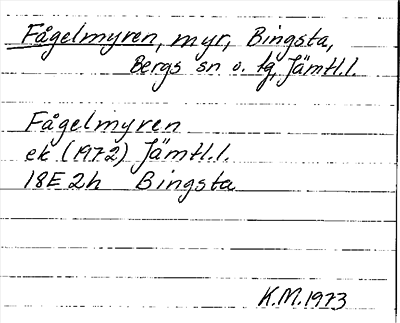 Fågelmyren, myr, Bingsta,
Bergs sn o. tg, Jämtl.l.
Fågelmyren
ek (1972) Jämtl.l.
18E2h Bingsta
K.M.1973